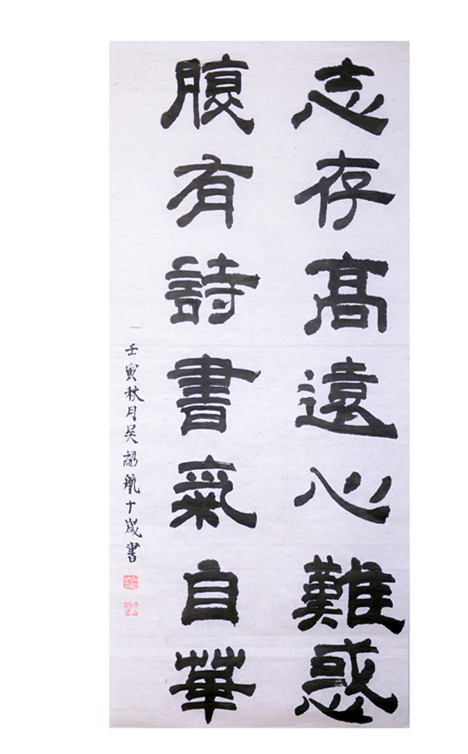 志存高遠心難惑
腹有詩書氣自華
壬寅秋月吴韶航十歲書